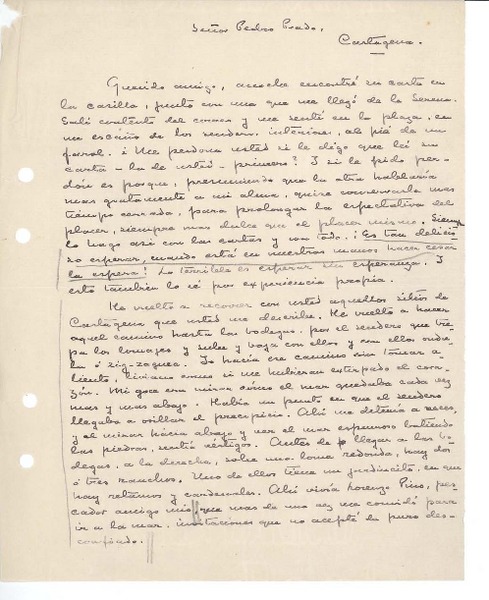 Señor Pedro Prado,
Cartagena.
Querido amigo, anoche encontré su carta en
la casilla, junto con una que me llegó de la Serena.
Salí contento del correo y me senté en la plaza, en
un escaño de los senderos interiores, al pié de un
farol. ¿Me perdona usted si le digo que leí su
carta - la de usted - primero? I si le pido per-
dón es porque, presumiendo que la otra hablaría
mas gratamente a mi alma, quise conservarla mas
tiempo cerrada, para prolongar la espectativa del
placer, siempre mas dulce que el placer mismo. Siempre
lo hago así con las cartas y con todo. ¡Es tan delicio-
so esperar, cuando está en nuestras manos hacer cesar
la espera! Lo terrible es esperar sin esperanza. I
esto tambien lo sé por esperiencia propia.
He vuelto a recorrer con usted aquellos sitios de
Cartagena que usted me describe. He vuelto a hacer
aquel camino hasta las bodegas, por el sendero que tre-
pa los lomajes y sube y baja con ellos y con ellos ondu-
la ó zig-zaguea. Yo hacía ese camino sin tomar a-
liento, liviano como si me hubieran estirpado el cora-
zón. Mi goce era mirar cómo el mar quedaba cada vez
mas y mas abajo. Había un punto en que el sendero
llegaba a orillar el precipicio. Ahí me detenía a veces,
y al mirar hácia abajo y ver el mar espumoso batiendo
las piedras, sentía vértigos. Antes de llegar a las bo-
degas, a la derecha, sobre una loma redonda, hay dos
ó tres ranchos. Uno de ellos tiene un jardincito en que
hay retamos y cardenales. Ahí vivía Lorenzo Pino, pes-
cador amigo mio, que mas de una vez me convidó para
ir a la mar, invitaciones que no acepté de puro des-
confiado.